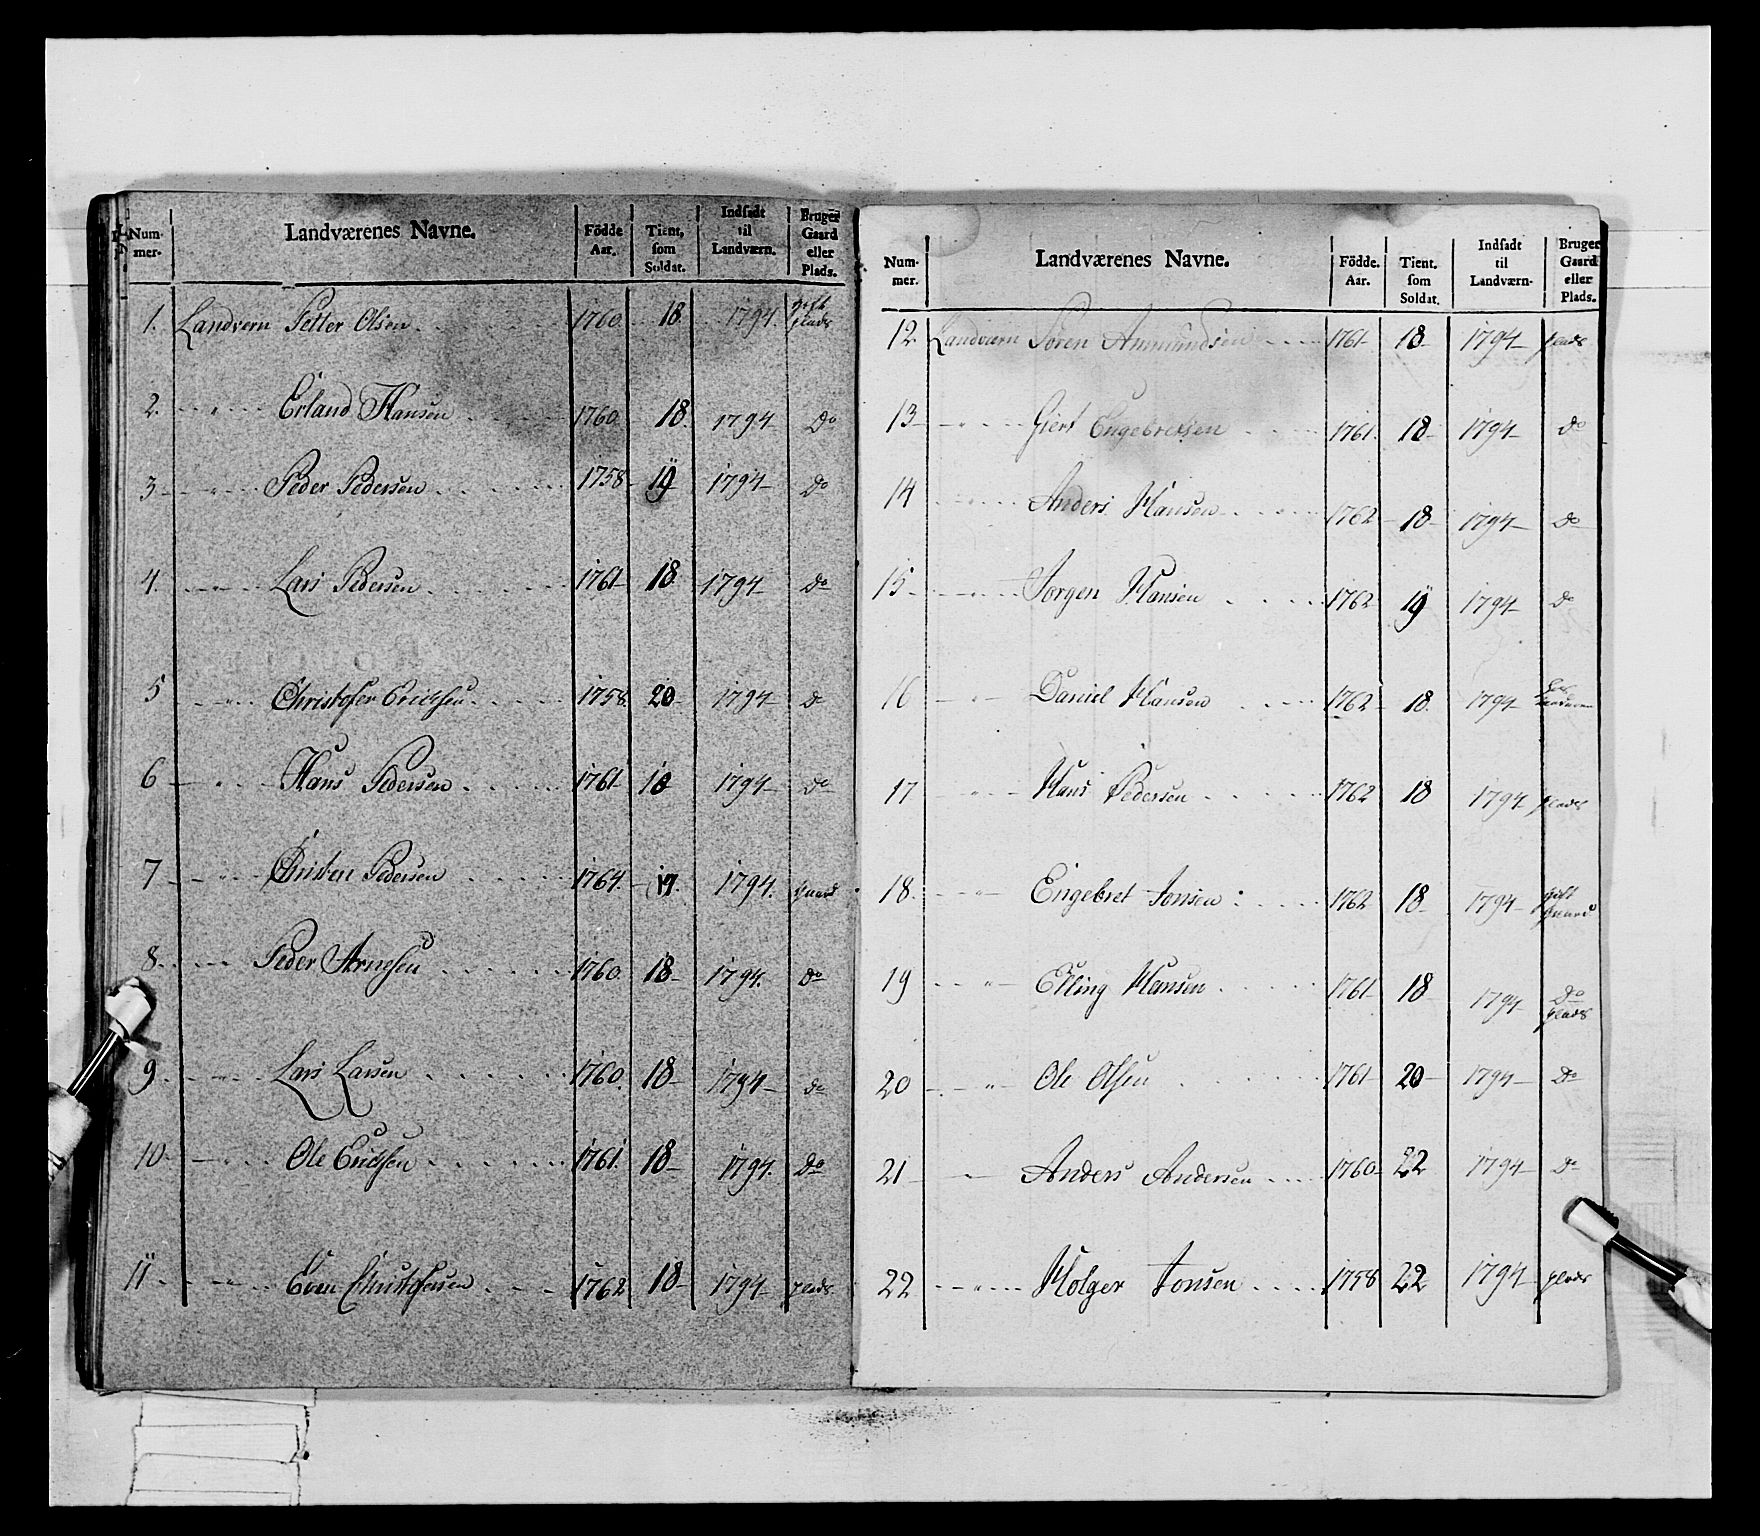 Num-
mer.
Landværenes Navne.
Födde
Aar.
Tient.
som
Soldat.
Indsadt
til
Landværn.
Bruger
Gaard
eller
Plads.
1. Landvern Petter Olsen 1760 18 1794 gift plads
2. " Erland Hansen 1760 18 1794 Do
3 " Peder Pedersen 1758 19 1794 Do
4. " Lars Pedersen 1761 18 1794 Do
5 " Christofer Erichsen 1758 20 1794 Do
6 " Hans Pedersen 1761 18 1794 Do
7 " Christen Pedersen 1764. 17. 1794. Gaard
8. Peder Arnesen 1760 18 1794. Do
9. " Lars Larsen 1760. 18 1794 Do
10. " Ole Erichsen 1761. 18 1794. Do
11 " Even Christofersen 1762 18 1794 plads
Num-
mer.
Landværenes Navne.
Födde.
Aar.
Tient.
som
Soldat.
Indsadt
til
Landværn.
Bruger
Gaard
eller
Plads.
12 Landværn Sören Ammundsen 1761 18 1794 plads
13 " Giert Engebretsen 1761. 18 1794 Do
14 " Anders Hansen 1762 18 1794 Do
15 " Jorgen Hansen 1762 19 1794 Do
16 " Daniel Hansen 1762 18. 1794
17 " Hans Pedersen 1762 18 1794 plads
18. " Engebret Jonsen 1762 18 1794 gift Gaard
19 " Elling Hansen 1761 18 1794 Do plads
20 " Ole Olsen 1761 20 1794 Do
21 " Anders Andersen 1760 22 1794 Do
22 " Holger Jonsen 1758 22 1794 plads